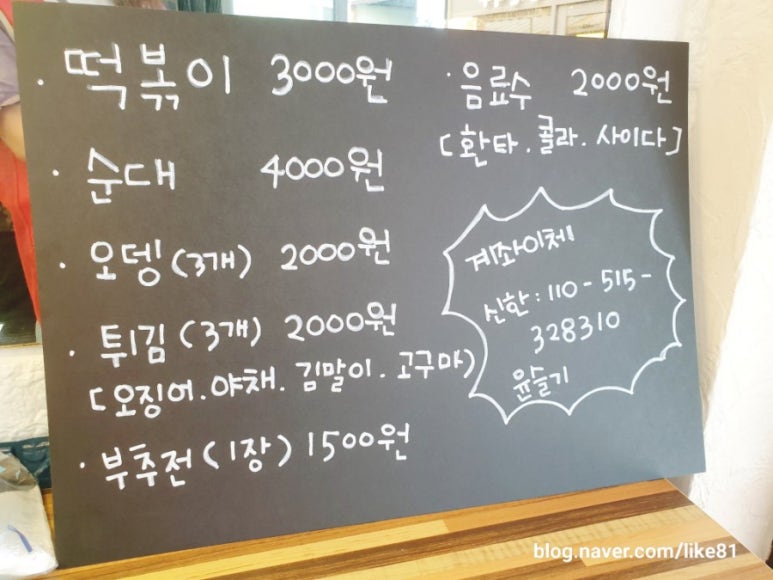 · 떡볶이 3000원
· 순대 4000원
· 오뎅 (3개) 2000원
· 튀김 (3개) 2000원
[오징어.야채.김말이.고구마)
· 부추전 (1장) 1500원
· 음료수 2000원
[환타.콜라.사이다]
계좌이체
신한 : 110 - 515 -
328310
윤슬기
blog.naver.com/like81